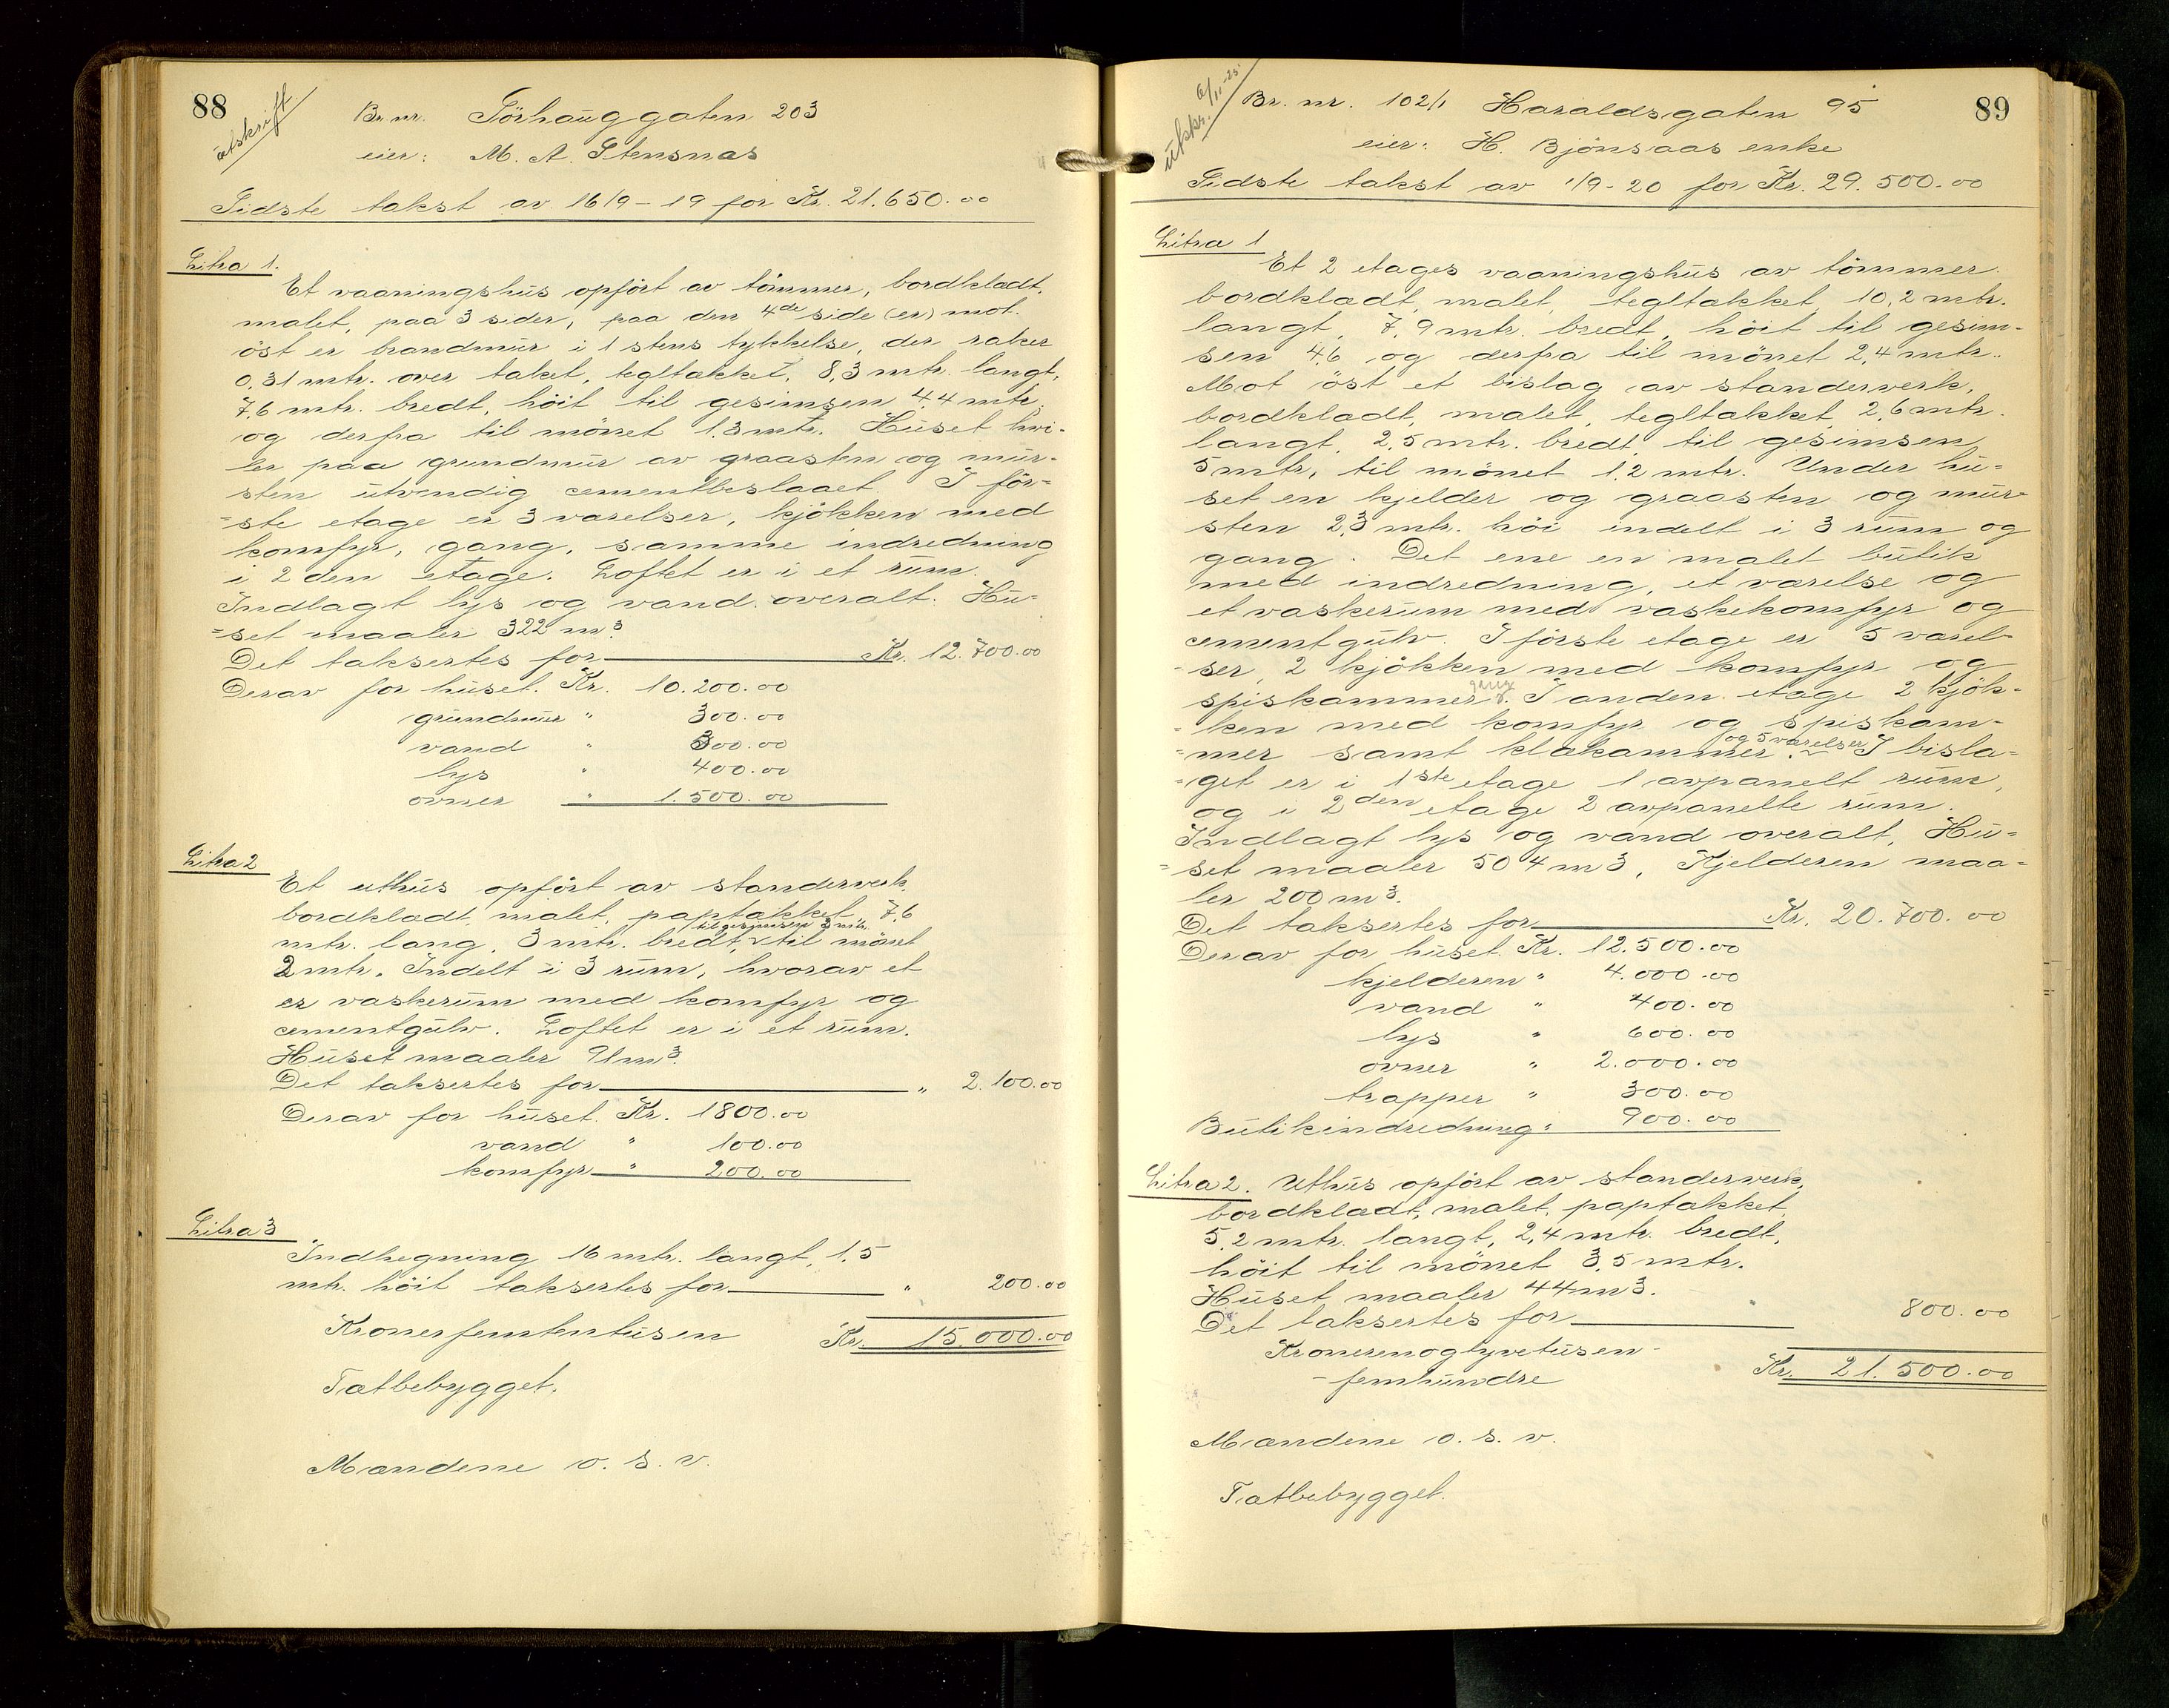 88
utskrift.
Br. nr. Törhauggaten 203
eier: M. A. Stensnas
Sidste takst av 16/9 - 19 for Kr. 21.650.00
Litra 1.
Et vaaningshus opfört av tömmer, bordkladt,
malet, paa 3 sider, paa den 4de side (er) mot.
öst er brandmur i 1 stens tykkelse, der raker
0.31 mtr. over taket, tegltakket, 8,3 mtr. langt,
7,6 mtr. bredt, höit til gesimsen 4,4 mtr.
og derfra til mönet 1.3 mtr. Huset hvi-
ler paa grundmur av graasten og mur-
sten utvendig cementbeslaaet. I för-
=ste etage er 3 varelser, kjökken med
komfyr, gang, samme indredning
i 2 den etage. Loftet er i et rum.
Indlagt lys og vand overalt. Hu-
=set maaler 322 m3
Det taksertes for Kr. 12.700.00
Derav for huset. Kr. 10.200.00
grundmur " 300.00
vand " 300.00
lys " 400.00
ovner " 1.500.00
Litra 2
Et uthus opfört av standerverk,
bordkladt, malet, paptakket, 7,6
til gesimsen 3 mtr.
mtr. lang, 3 mtr. bredt, til mönet
2 mtr. Indelt i 3 rum, hvorav et
er vaskerum med komfyr og
cementgulv. Loftet er i et rum.
Huset maaler 91 m3.
Det taksertes for " 2.100.00
Derav for huset. Kr. 1800.00
vand " 100.00
komfyr " 200.00
Litra 3
Indhegning 16 mtr. langt, 1,5
mtr. höit taksertes for " 200.00
Kronerfemtentusen Kr. 15.000.00
Tatbebygget.
Mandene o. s. v.
89
utskr. 6/11-25.
Br. nr. 102/1 Haraldsgaten 95
eier: H. Bjönsaas enke
Sidste takst av 1/9 - 20 for Kr. 29.500.00
Litra 1
Et 2 etages vaaningshus av tömmer.
bordkladt, malet, tegltakket, 10,2 mtr.
langt, 7,9 mtr. bredt, höit til gesim-
sen 4,6 og derfra til mönet 2,4 mtr..
Mot öst et bislag av standerverk,
bordkladt, malet, tegltakket, 2,6 mtr.
langt, 2,5 mtr. bredt, til gesimsen
5 mtr, til mönet 1,2 mtr. Under hu-
set en kjelder og graasten og mur-
sten 2,3 mtr. höi indelt i 3 rum og
gang. Det ene en malet butik
med indredning, et varelse og
et vaskerum med vaskekomfyr og
cementgulv. I förste etage er 5 varel-
-ser, 2 kjökken med komfyr og
gang
spiskammer. I anden etage 2 kjök-
-ken med komfyr og spiskam-
og 5 varelser
=mer samt klakammer. I bisla-
=get er i 1ste etage 1 avpanelt rum,
og i 2den etage 2 avpanelte rum.
Indlagt lys og vand overalt, Hu-
=set maaler 504 m3, Kjelderen maa-
ler 200 m3.
Det taksertes for Kr. 20.700.00
Derav for huset. Kr. 12.500.00
kjelderen " 4.000.00
vand " 400.00
lys " 600.00
ovner " 2.000.00
trapper " 300.00
Butikindredning " 900.00
Litra 2. Uthus opfört av standerverk,
bordkladt, malet, paptakket,
5,2 mtr. langt, 2,4 mtr. bredt,
höit til mönet 3,5 mtr.
Huset maaler 44 m3.
Det taksertes for 800.00
Kronerenogtyvetusen-
-femhundre Kr. 21.500.00
Mandene o. s. v.
Tatbebygget.